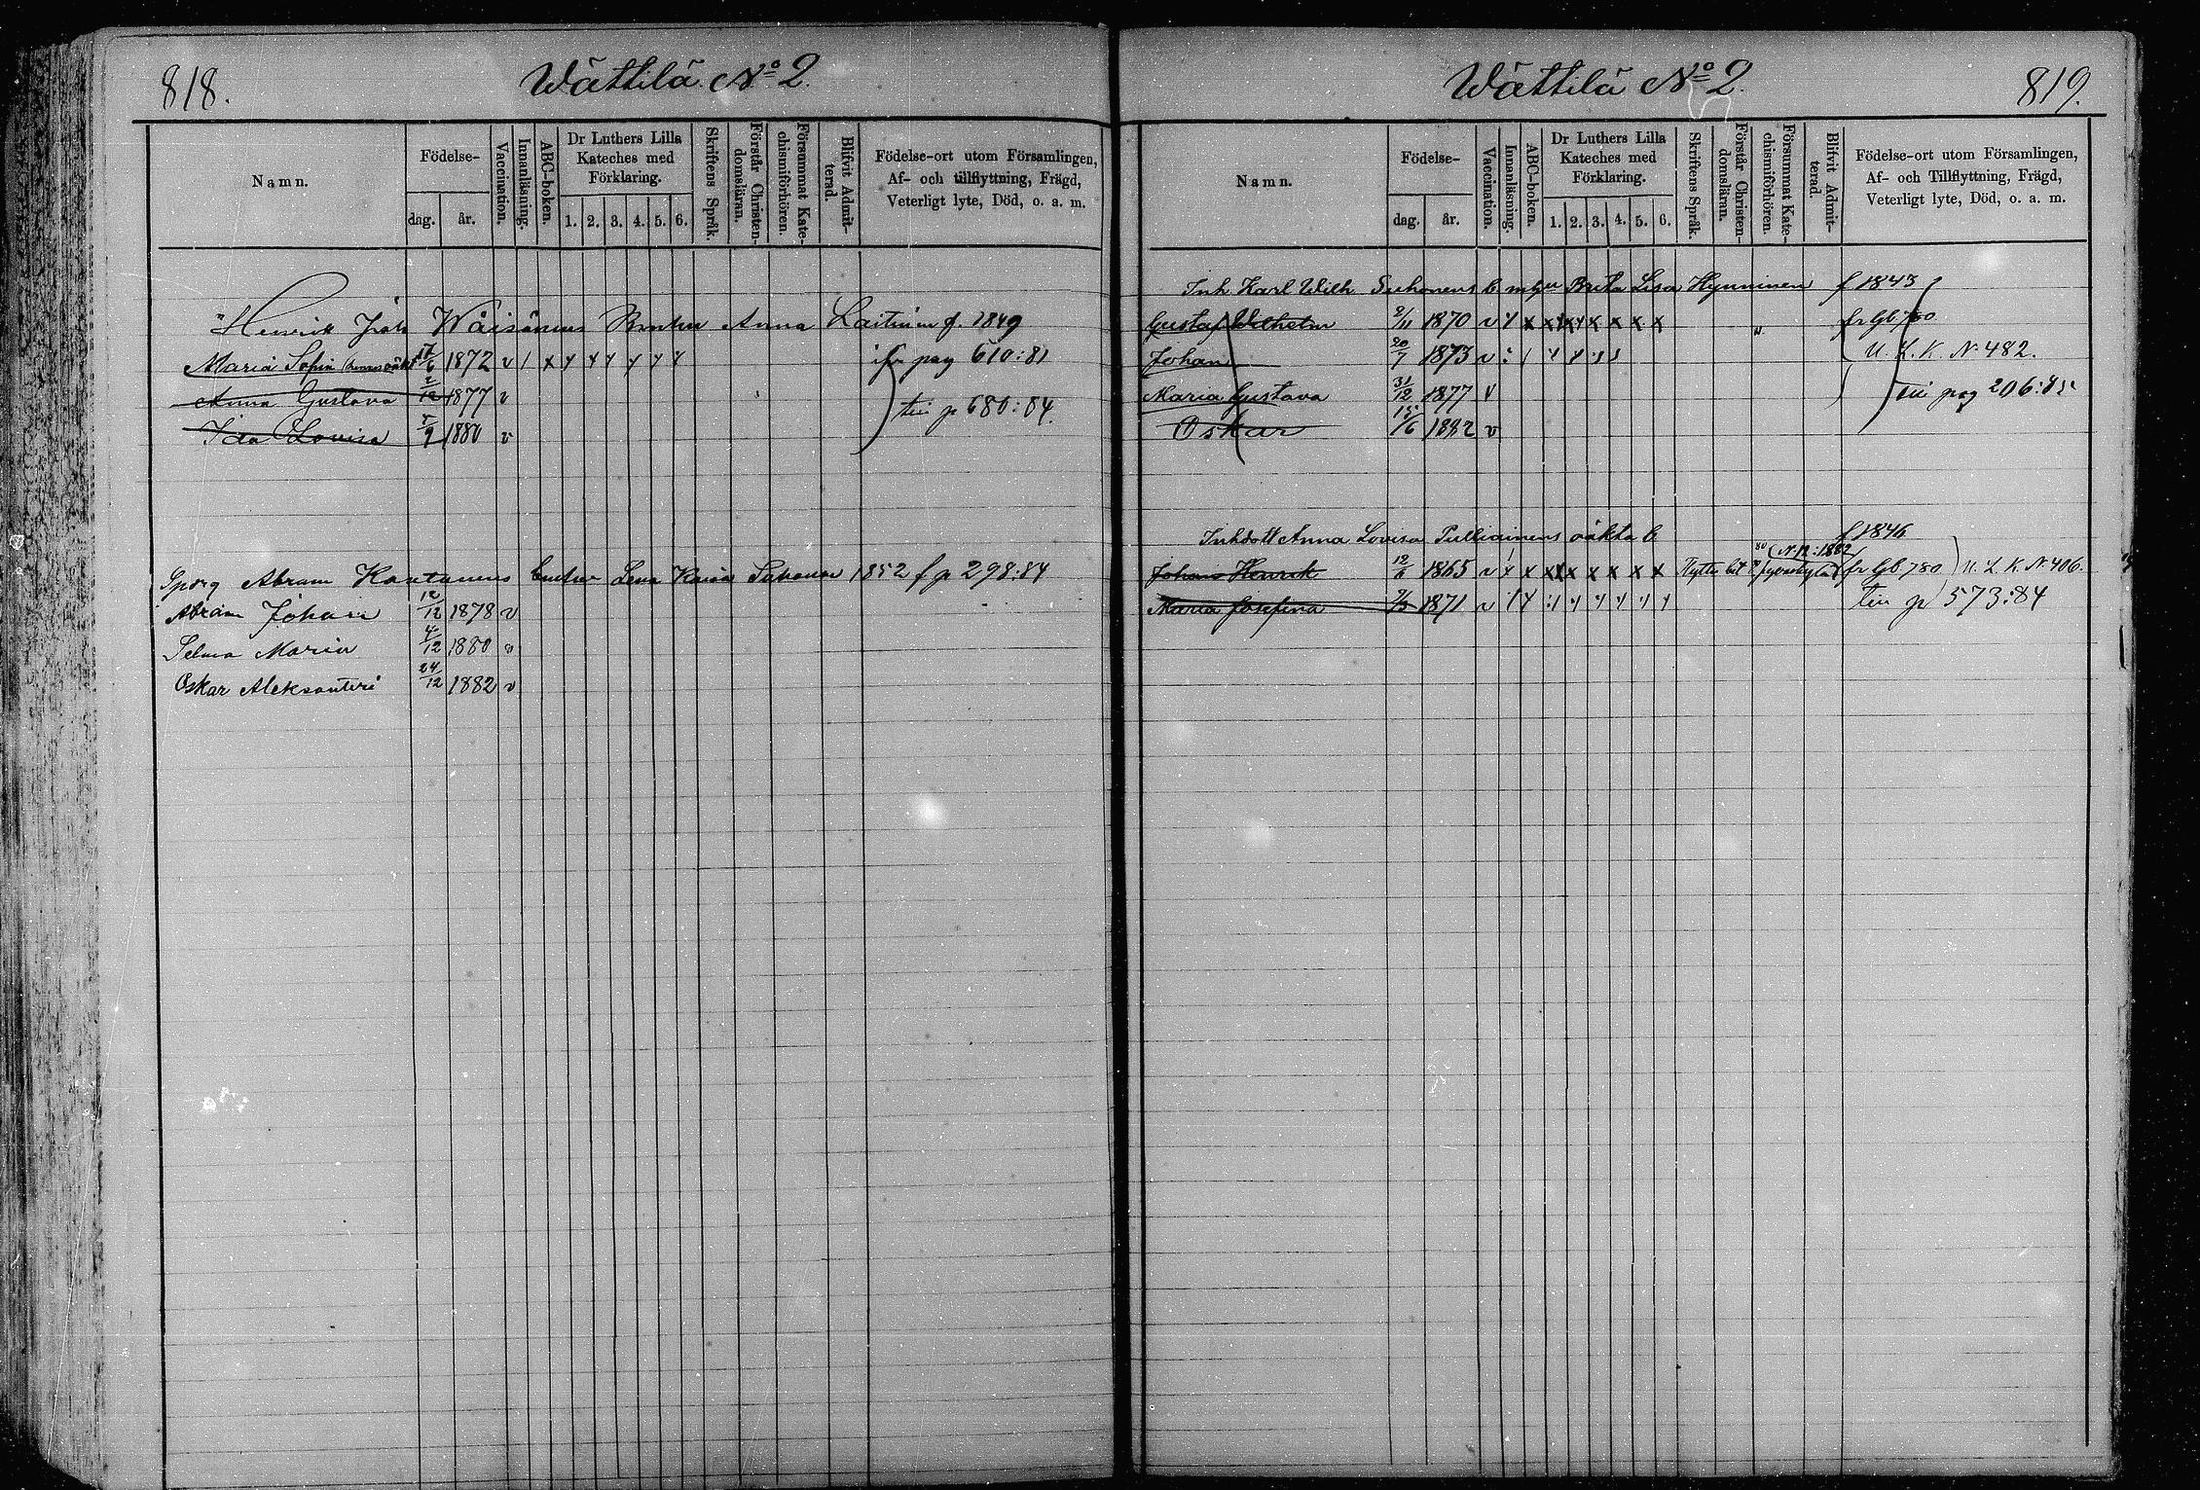 818.
Wättilä. No 2.
Namn.
Födelse-
dag. år.
Vaccination.
Innanläsning.
ABC-boken.
Dr Luthers Lilla
Kateches med
Förklaring.
1. 2. 3. 4. 5. 6.
Skriftens Språk.
Förstår Christen-
domsläran.
Försummat Kate-
chismiförhören.
Blifvit Admit-
terad.
Födelse-ort utom Församlingen,
Af- och tillflyttning, Frägd,
Veterligt lyte, Död, o. a. m.
Henrik Joh Wäisänens Anna f. 1849
Maria Sofia 17/6 1872 v fr pag 610:81
Anna Gustava 2/12 1877 v
Ida Lovisa 5/9 1880 v till p 680:84.
Abram Lena Kaisa 1852 f. p 298:84
Abram Johan 12/12 1878 v
Selma Maria 4/12 1880 v
Oskar Aleksanteri 24/12 1882 v
Wättilä No 2.
819.
Namn.
Födelse-
dag. år.
Vaccination.
Innanläsning.
ABC-boken.
Dr Luthers Lilla
Kateches med
Förklaring.
1. 2. 3. 4. 5. 6.
Skriftens Språk.
Förstår Christen-
domsläran.
Försummat Kate-
chismiförhören.
Blifvit Admit-
terad.
Födelse-ort utom Församlingen,
Af- och Tillflyttning, Frägd,
Veterligt lyte, Död, o. a. m.
Inh Karl Wilh Suhonens b m hu Brita Lisa Hynninen f 1843
Gustaf Wilhelm 2/11 1870 v x x x x x x x fr Gb 780
Johan 20/7 1873 v U. L. K. N. 482.
Maria Gustava 31/12 1877 v till pag 206:85
Oskar 15/6 1882 v
Inhdott Anna Lovisa Pulliainens oäkta b f 1846
N. 12:1882
Johan Henrik 12/6 1865 v x x x x x x x Flytte bet fr Gb 780 U. L. K. N. 406.
Maria Josefina 2/3 1871 v till p 573:84